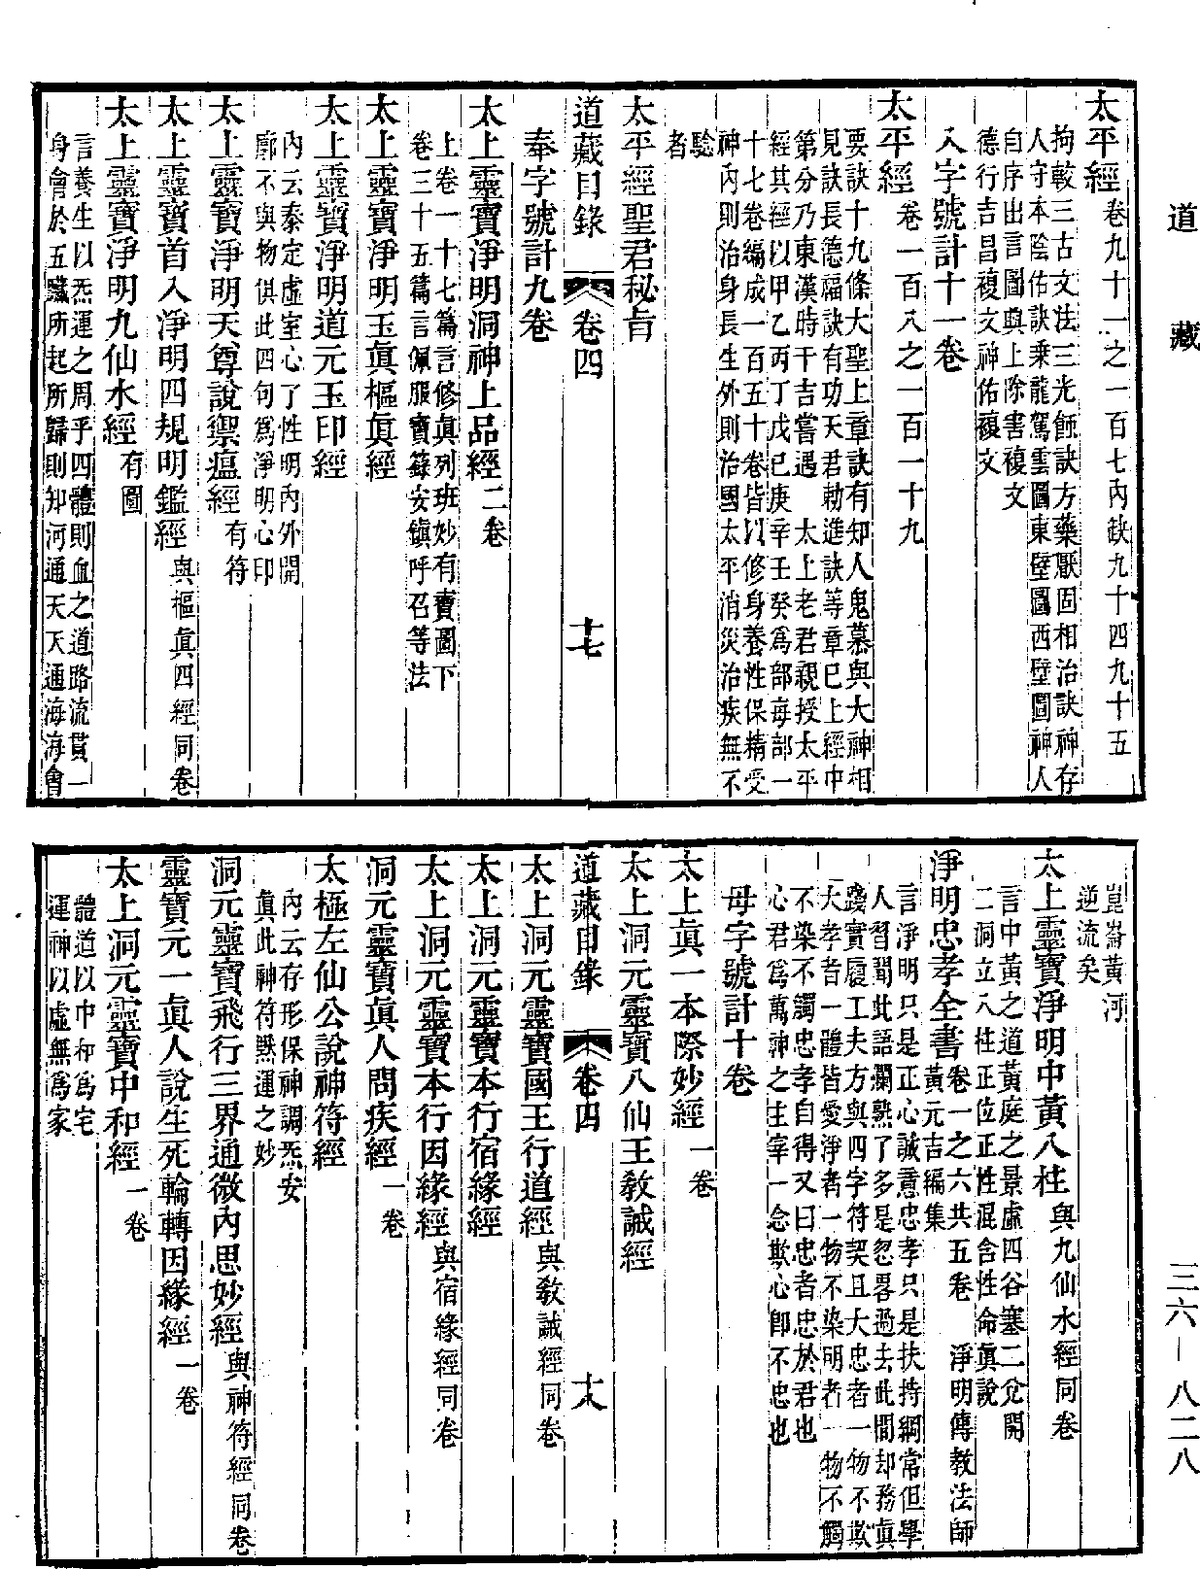 道藏
三六—八二八
太平經卷九十一之一百七內缺九十四九十五
拘較三古文法三光蝕訣方藥厭固相治訣神存
人守本陰佑訣乘龍駕雲圖東壁圖西壁圖神人
自序出言圖與上除害複文
德行吉昌複文神佑複文
入字號計十一卷
太平經卷一百八之一百一十九
要訣十九條大聖上章訣有知人鬼慕與大神相
見訣長德福訣有功天君勅進訣等章已上經中
第分乃東漢時干吉嘗遇 太上老君親授太平
經其經以甲乙丙丁戊己庚辛壬癸爲部每部一
十七卷編成一百五十卷皆以修身養性保精受
神內則治身長生外則治國太平消災治疾無不
驗
者
太平經聖君秘旨
道藏目錄 卷四 十七
奉字號計九卷
太上靈寶淨明洞神上品經二卷
上卷一十七篇言修眞列班妙有寶圖下
卷三十五篇言佩服寶籙安鎮呼召等法
太上靈寶淨明玉眞樞眞經
太上靈寶淨明道元玉印經
內云泰定虛室心了性明內外開
廓不與物俱此四句爲淨明心印
太上靈寶淨明天尊說禦瘟經有符
太上靈寶首入淨明四規明鑑經與樞眞四經同卷
太上靈寶淨明九仙水經有圖
言養生以炁運之周乎四體則血之道路流貫一
身會於五臟所起所歸則知河通天天通海海會
崑崙黃河
逆流矣
太上靈寶淨明中黃八柱與九仙水經同卷
言中黃之道黃庭之景虛四谷塞二兌開
二洞立八柱正位正性混合性命眞說
淨明忠孝全書卷一之六共五卷 淨明傳教法師
黃元吉編集
言淨明只是正心誠意忠孝只是扶持綱常但學
人習聞此語爛熟了多是忽畧過去此間却務眞
踐實履工夫方與四字符契且大忠者一物不欺
大孝者一體皆愛淨者一物不染明者一物不觸
不染不觸忠孝自得又曰忠者忠於君也
心君爲萬神之主宰一念欺心卽不忠也
母字號計十卷
太上眞一本際妙經一卷
太上洞元靈寶八仙王教誡經
道藏目錄 卷四 十八
太上洞元靈寶國王行道經與教誡經同卷
太上洞元靈寶本行宿緣經
太上洞元靈寶本行因緣經與宿緣經同卷
洞元靈寶眞人問疾經一卷
太極左仙公說神符經
內云存形保神調炁安
眞此神符默運之妙
洞元靈寶飛行三界通微內思妙經與神符經同卷
靈寶元一眞人說生死輪轉因緣經一卷
太上洞元靈寶中和經一卷
體道以中和爲宅
運神以虛無爲家